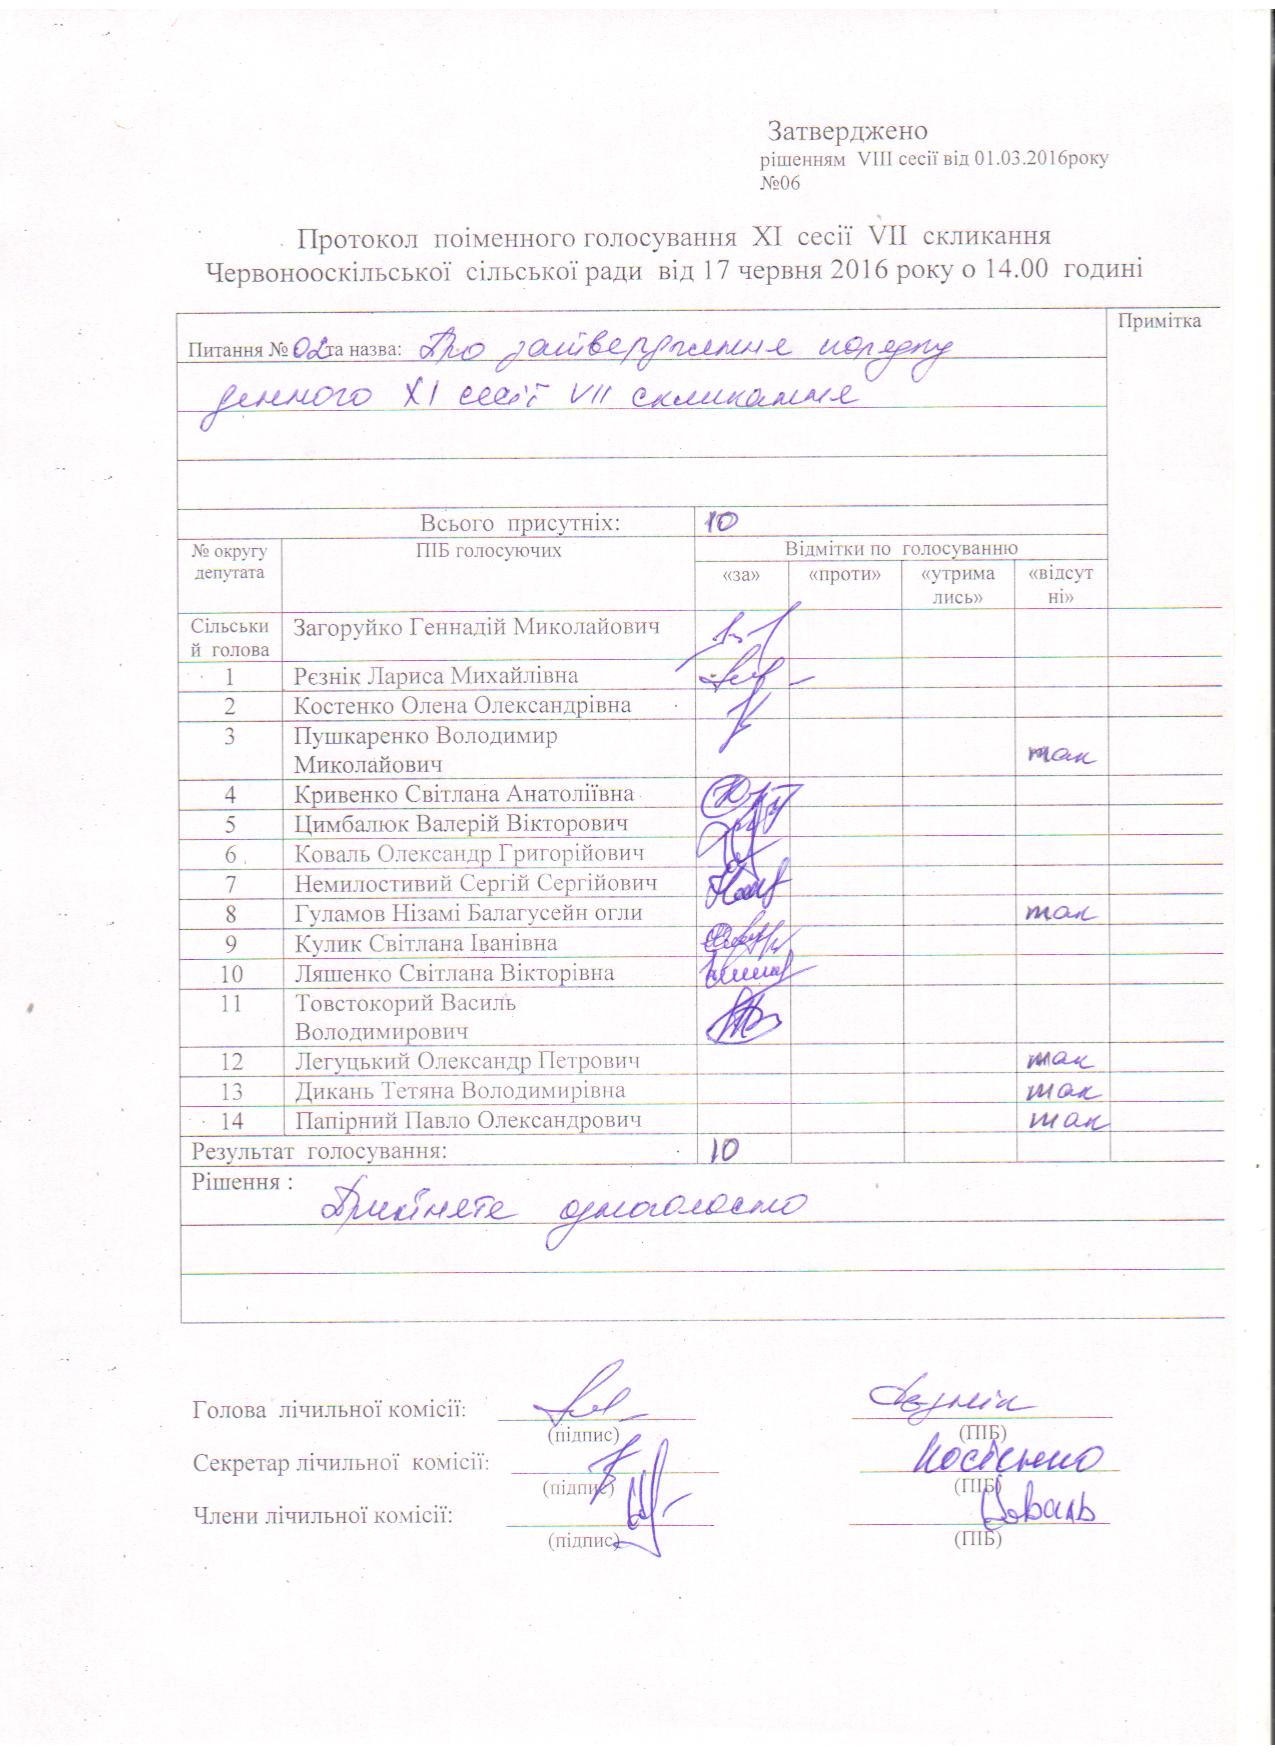 Затверджено
рішенням VIII сесії від 01.03.2016року
№06
Протокол поіменного голосування XI сесії VII скликання
Червонооскільської сільської ради від 17 червня 2016 року о 14.00 годині
Питання № 02 та назва: Про затвердження порядку Примітка
денного XI сесії VII скликання
Всього присутніх: 10
№ округу депутата ПІБ голосуючих Відмітки по голосуванню
«за» «проти» «утрима лись» «відсут ні»
Сільськи й голова Загоруйко Геннадій Миколайович
1 Рєзнік Лариса Михайлівна
2 Костенко Олена Олександрівна
3 Пушкаренко Володимир
Миколайович так
4 Кривенко Світлана Анатоліївна
5 Цимбалюк Валерій Вікторович
6 Коваль Олександр Григорійович
7 Немилостивий Сергій Сергійович
8 Гуламов Нізамі Балагусейн огли так
9 Кулик Світлана Іванівна
10 Ляшенко Світлана Вікторівна
11 Товстокорий Василь
Володимирович
12 Легуцький Олександр Петрович так
13 Дикань Тетяна Володимирівна так
14 Папірний Павло Олександрович так
Результат голосування: 10
Рішення :
Прийняте одноголосно
Голова лічильної комісії: Рєзнік
(підпис) (ПІБ)
Секретар лічильної комісії: Костенко
(підпис) (ПІБ)
Члени лічильної комісії: Коваль
(підпис) (ПІБ)